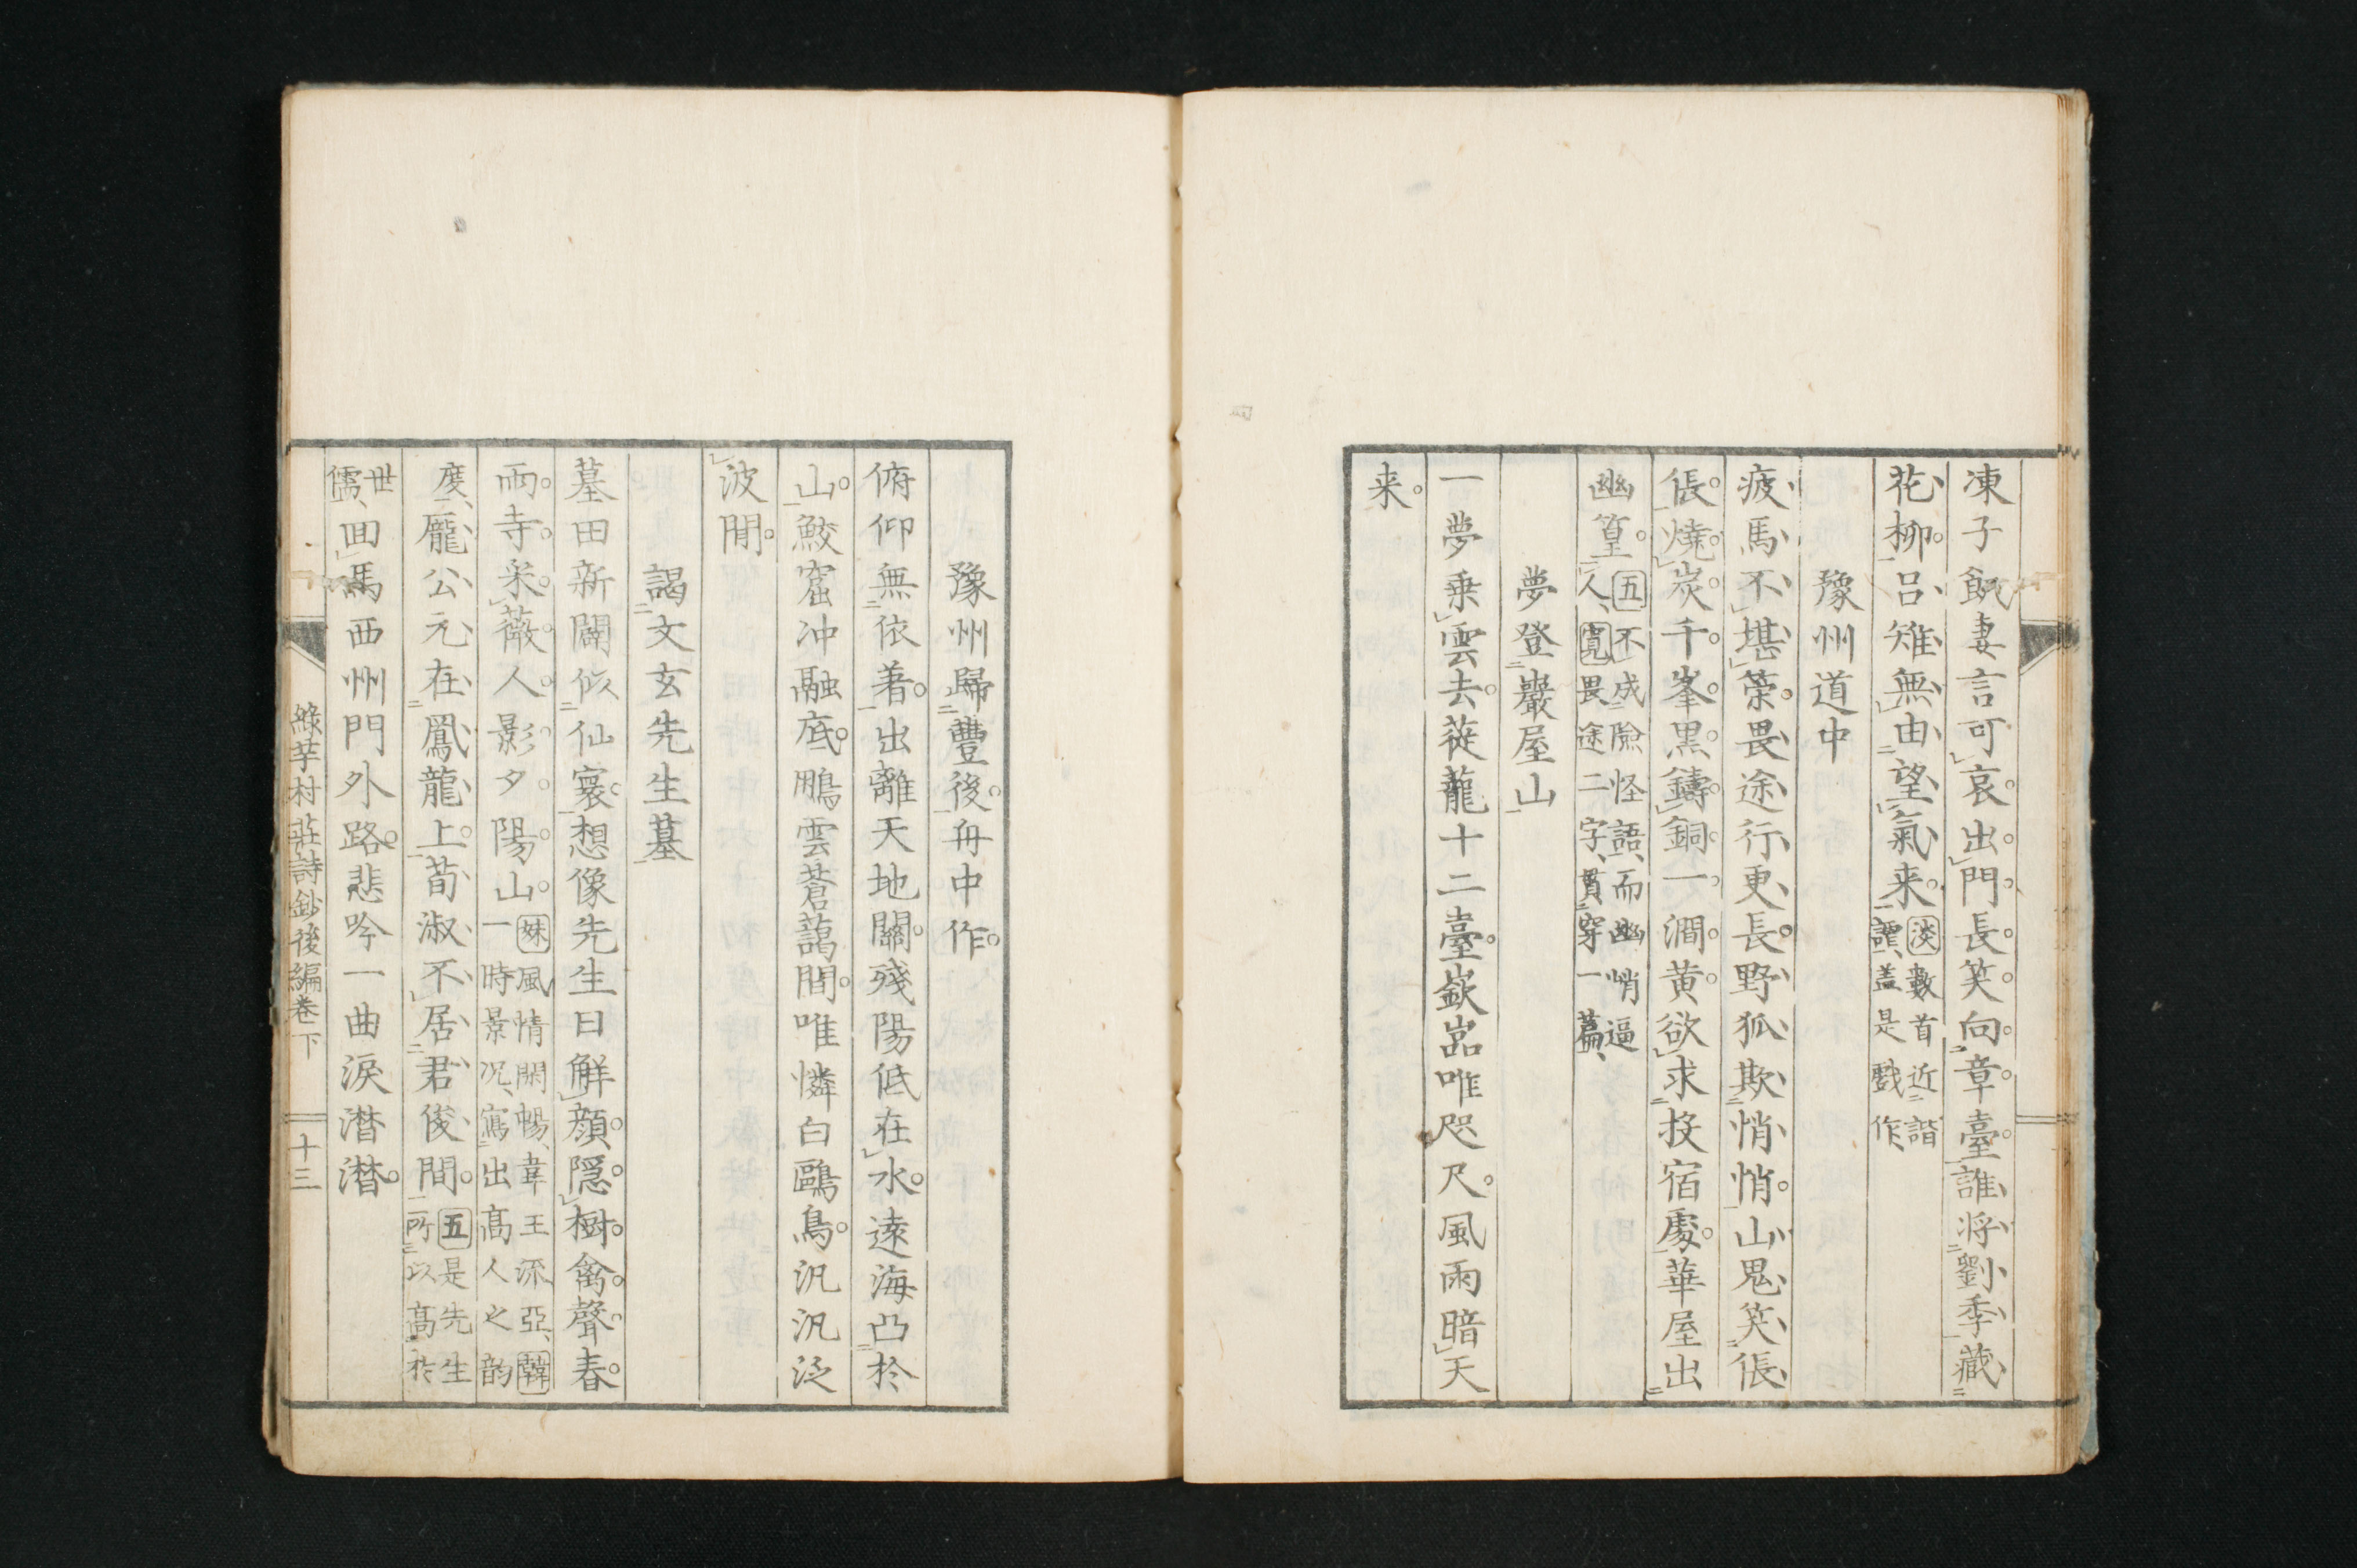 凍子飢妻言可哀。出門長笑向章臺。誰将劉季藏
花柳。呂雉無由望氣来。淡數首近諧
謔、盖是戲作、
豫州道中
疲馬不堪策畏途行更長。野狐欺悄悄。山鬼笑倀
倀。燒炭千峯黒。鑄銅一澗黄。欲求投宿處。華屋出
幽篁。五不成險怪語、而幽悄逼
人、寛畏途二字、貫穿一篇、
夢登巖屋山
一夢乗雲去。蓰龍十二臺。嶔嵓唯咫尺。風雨暗天
来。
豫州歸豊後。舟中作。
俯仰無依著。出離天地關。殘陽低在水。遠海凸於
山。鮫窟冲融底。鵬雲蒼藹間。唯憐白鷗鳥。汎汎泛
波閒。
謁文玄先生墓
墓田新闢似仙寰。想像先生日觧顔。隠樹禽聲春
雨寺。采薇人影夕陽山。妹風情閑暢、韋王流亞、韓
一時景况、寫出高人之韵
度、龐公元在鳳龍上。荀淑不居君俊間。五是先生
二所以高於
世
儒、囬馬西州門外路。悲吟一曲涙潸潸。
緑芋村莊詩鈔後編巻下
十三